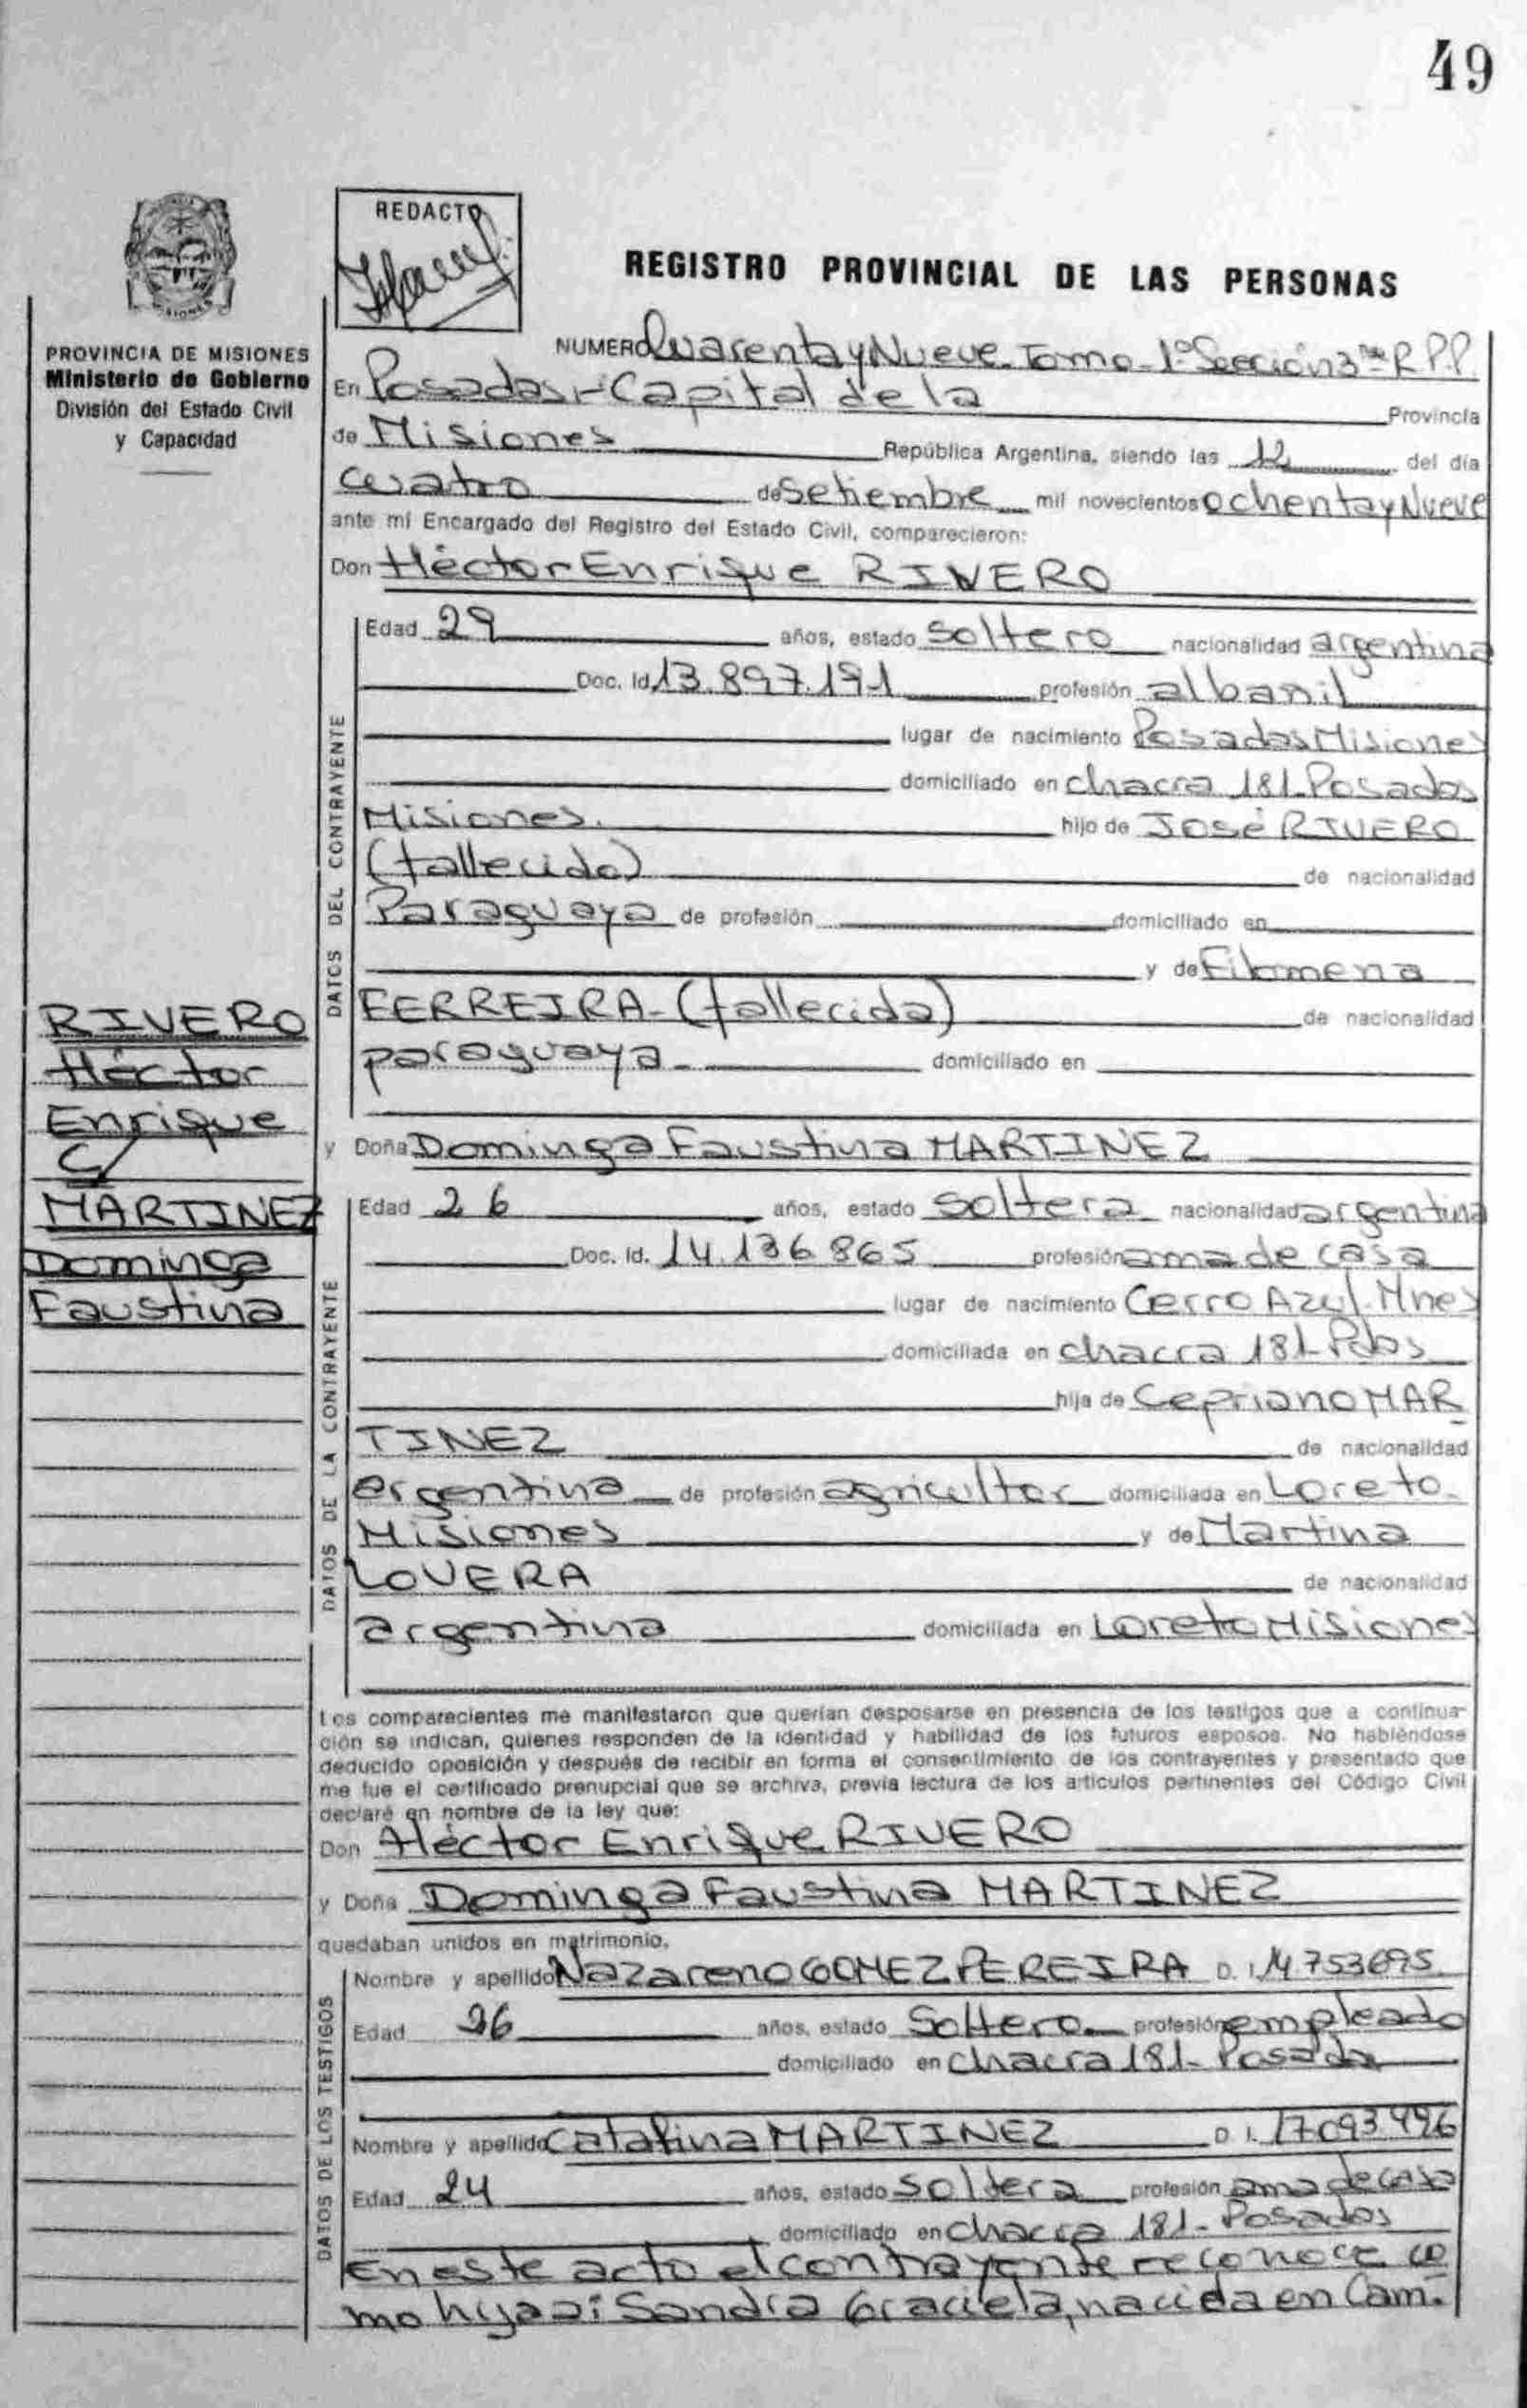 49
REDACTO
REGISTRO PROVINCIAL DE LAS PERSONAS
PROVINCIA DE MISIONES
Ministerio de Gobierno
División del Estado Civil
y Capacidad
NUMERO Cuarenta y Nueve Tomo-1º Sección 3ra R.P.P.
En Posadas,-Capital de la Provincia
de Misiones República Argentina, siendo las 12 del día
cuatro de Setiembre mil novecientos ochenta y Nueve
ante mí Encargado del Registro del Estado Civil, comparecieron:
Don Héctor Enrique RIVERO
Edad 29 años, estado soltero nacionalidad argentina
Doc. Id. 13.897.191 profesión albanil
lugar de nacimiento Posadas Misiones
domiciliado en chacra 181-Posadas
Misiones. hijo de José RIVERO
(fallecido) de nacionalidad
Paraguaya de profesión domiciliado en
y de Filomena
FERREIRA-(fallecida) de nacionalidad
paraguaya- domiciliado en
DATOS DEL CONTRAYENTE
RIVERO
Héctor
Enrique
C/
MARTINEZ
Dominga
Faustina
y Doña Dominga Faustina MARTINEZ
Edad 26 años, estado soltera nacionalidad argentina
Doc. Id. 14.136.865 profesión ama de casa
lugar de nacimiento Cerro Azul-Mnes
domiciliada en chacra 181-Pdas
hija de Cepriano MAR
TINEZ de nacionalidad
argentina de profesión agricultor domiciliada en Loreto-
Misiones y de Martina
LOVERA de nacionalidad
argentina domiciliada en Loreto Misiones
DATOS DE LA CONTRAYENTE
Los comparecientes me manifestaron que querían desposarse en presencia de los testigos que a continua-
ción se indican, quienes responden de la identidad y habilidad de los futuros esposos. No habiéndose
deducido oposición y después de recibir en forma el consentimiento de los contrayentes y presentado que
me fue el certificado prenupcial que se archiva, previa lectura de los artículos pertinentes del Código Civil
declaré en nombre de la ley que:
Don Héctor Enrique RIVERO
y Doña Dominga Faustina MARTINEZ
quedaban unidos en matrimonio.
Nombre y apellido Nazareno GOMEZ PEREIRA D. I. 14753695
Edad 26 años, estado Soltero- profesión empleado
domiciliado en chacra 181- Posada
Nombre y apellido Catalina MARTINEZ D. I. 17093496
Edad 24 años, estado soltera profesión ama de casa
domiciliado en chacra 181- Posadas
DATOS DE LOS TESTIGOS
En este acto el contrayente reconoce co
mo hija a: Sandra Graciela, nacida en Cam.